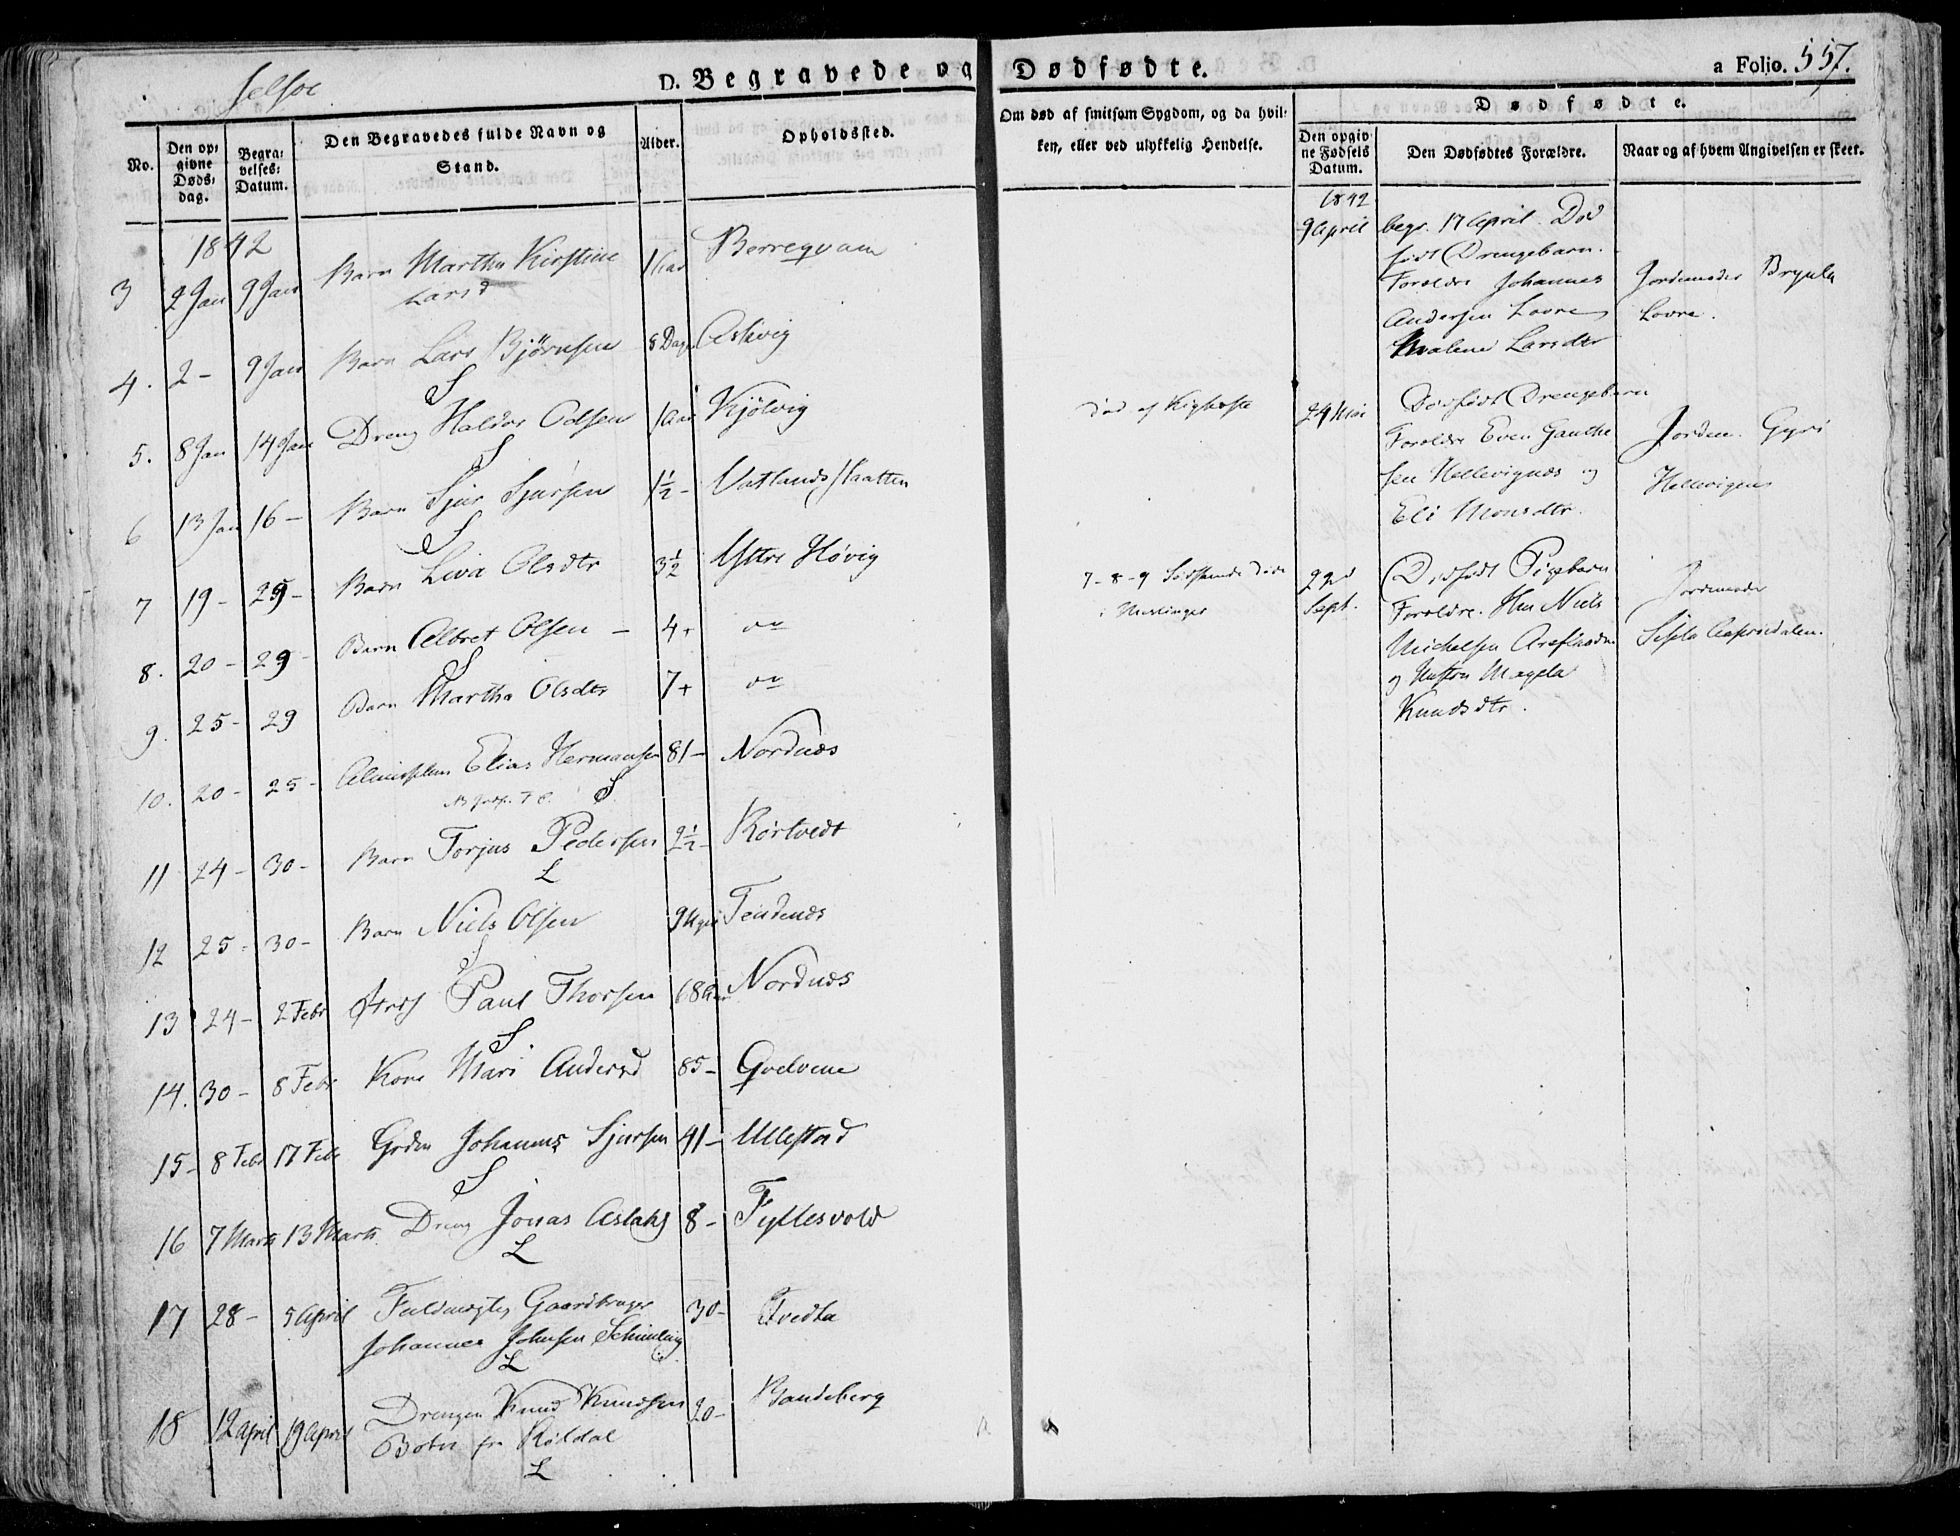 Jelsøe
D. Begravede og Dødfødte.
a Folio. 557.
No.
Den opgivne Dødsdag.
Begravelses-Datum.
Den Begravedes fulde Navn og Stand.
Alder.
Opholdssted.
Om død af smitsom Sygdom, og da hvilken, eller ved ulykkelig Hendelse.
Dødfødte.
Den opgivne Fødsels Datum.
Den Dødfødtes Forældre.
Naar og af hvem Angivelsen er skeet.
1842
3 2 Jan 9 Jan Barn Martha Kirstine 1 Aar Berreqvam
Larsd
4. 2 - 9 Jan Barn Lars Bjørnsen 8 Dage Asivig
S
5. 8 Jan 14 Jan Dreng Haldor Odsen 1 Aar Kjölvig død af Kighoste
S
6 13 Jan 16 - Barn Sjur Sjursen 1½ - Vatlandsslaatten
S
7 19 - 29 - Barn Liva Olsdtr 3½ Yttre Høvig 7-8-9 Sødskende døde
i Meslinger
8. 20 - 29 - Barn Albret Olsen - 4 + do
S
9. 25 - 29 Barn Martha Olsdtr 7 + do
10. 20 - 25 - Elias Hermansen 81 - Nordnæs
S
11 24 - 30 - Barn Torjus Pedersen 2½ - Rørtvedt
L
12 25 - 30 - Barn Niels Olsen 9 Uger Tendenæs
S
13 24 - 2 Febr Paul Thorsen 68 Aar Nordnæs
S
14. 30 - 8 Febr Kone Mari Andersd 85 - Qvelvene
15 - 8 Febr 17 Febr Grdm Johannes Sjursen 41 - Ullestad
S
16 7 Marts 13 Marts Dreng Jonas Aslaks 8 - Fyllesvold
L
17 28 - 5 April Fuldmægtig Gaardbruger 30 - Tvedta
Johannes Johnsen
L
18 12 April 19 April Drengen Knud Knudsen 20 - Bandeberg
fra Röldal
L
1842
9 April begr. 17 April Død
født Drengebarn.
Foreldre Johannes Jordemoder Brynla
Andersen Lovre Lovre.
Malene Larsdtr
24 Mai Dødfødt Drengebarn
Foreldre Even Gauthe Jordem. Gyri
sen Hellevignæs og Hellevignes
Eli Monsdtr.
22d Dødfødt Pigebarn Jordemoder
Sept. Foreldre. Niels
Michelsen
og Magela
Knudsdtr.